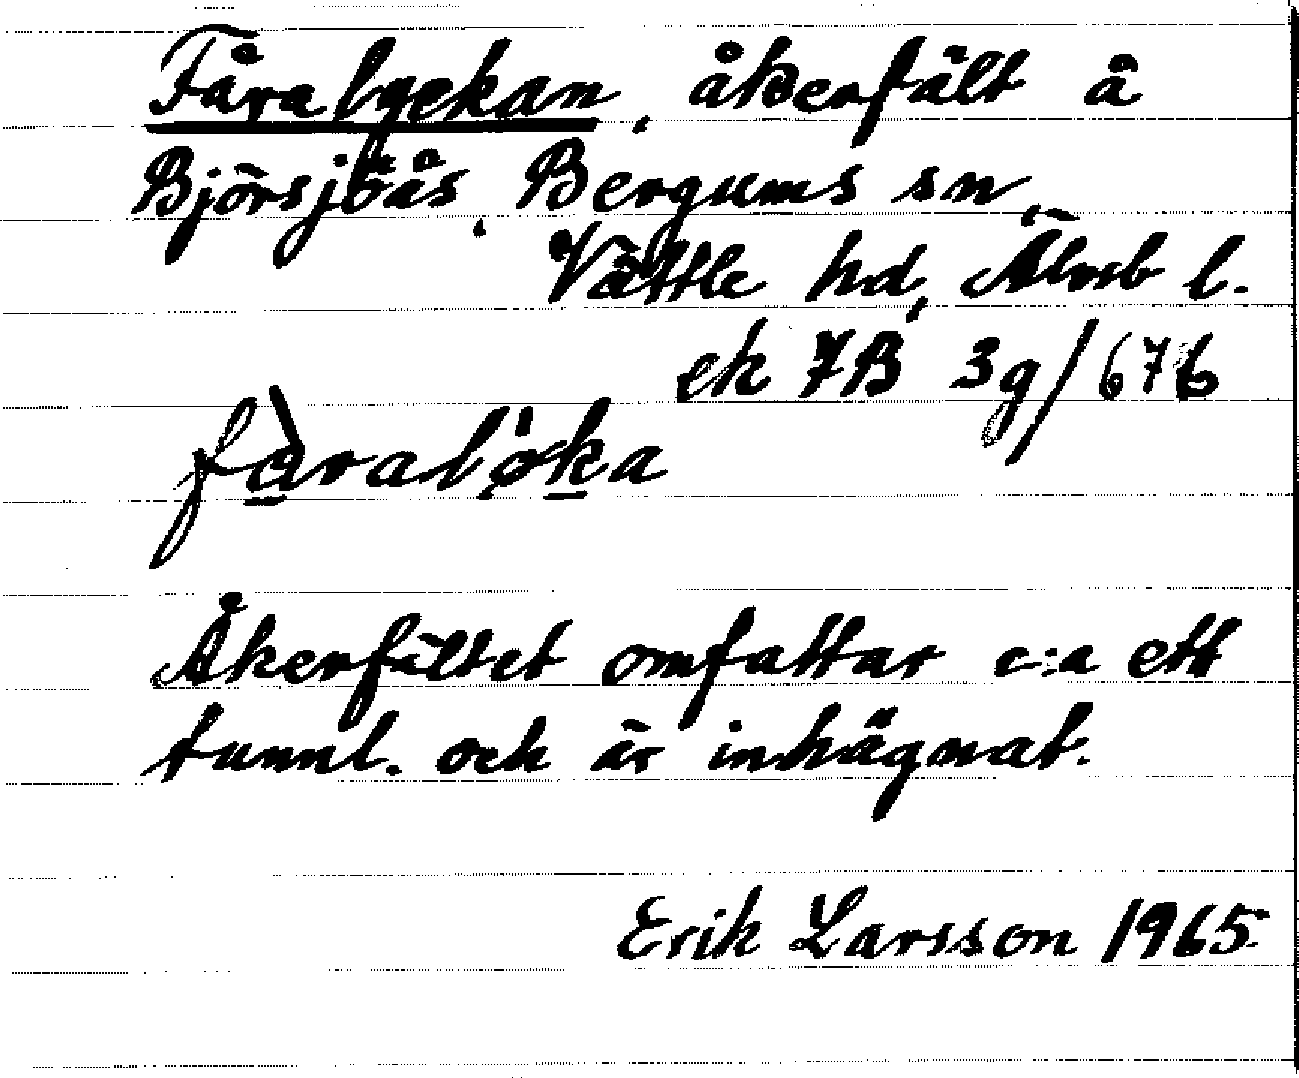 Fåralyckan, åkerfält å
Björsjöås, Bergums sn,
Vättle hd, Älvsb l.
ek 7B 3g/676
fàralø̀ka
Åkerfältet omfattar c:a ett
tunnl. och är inhägnat.
Erik Larsson 1965